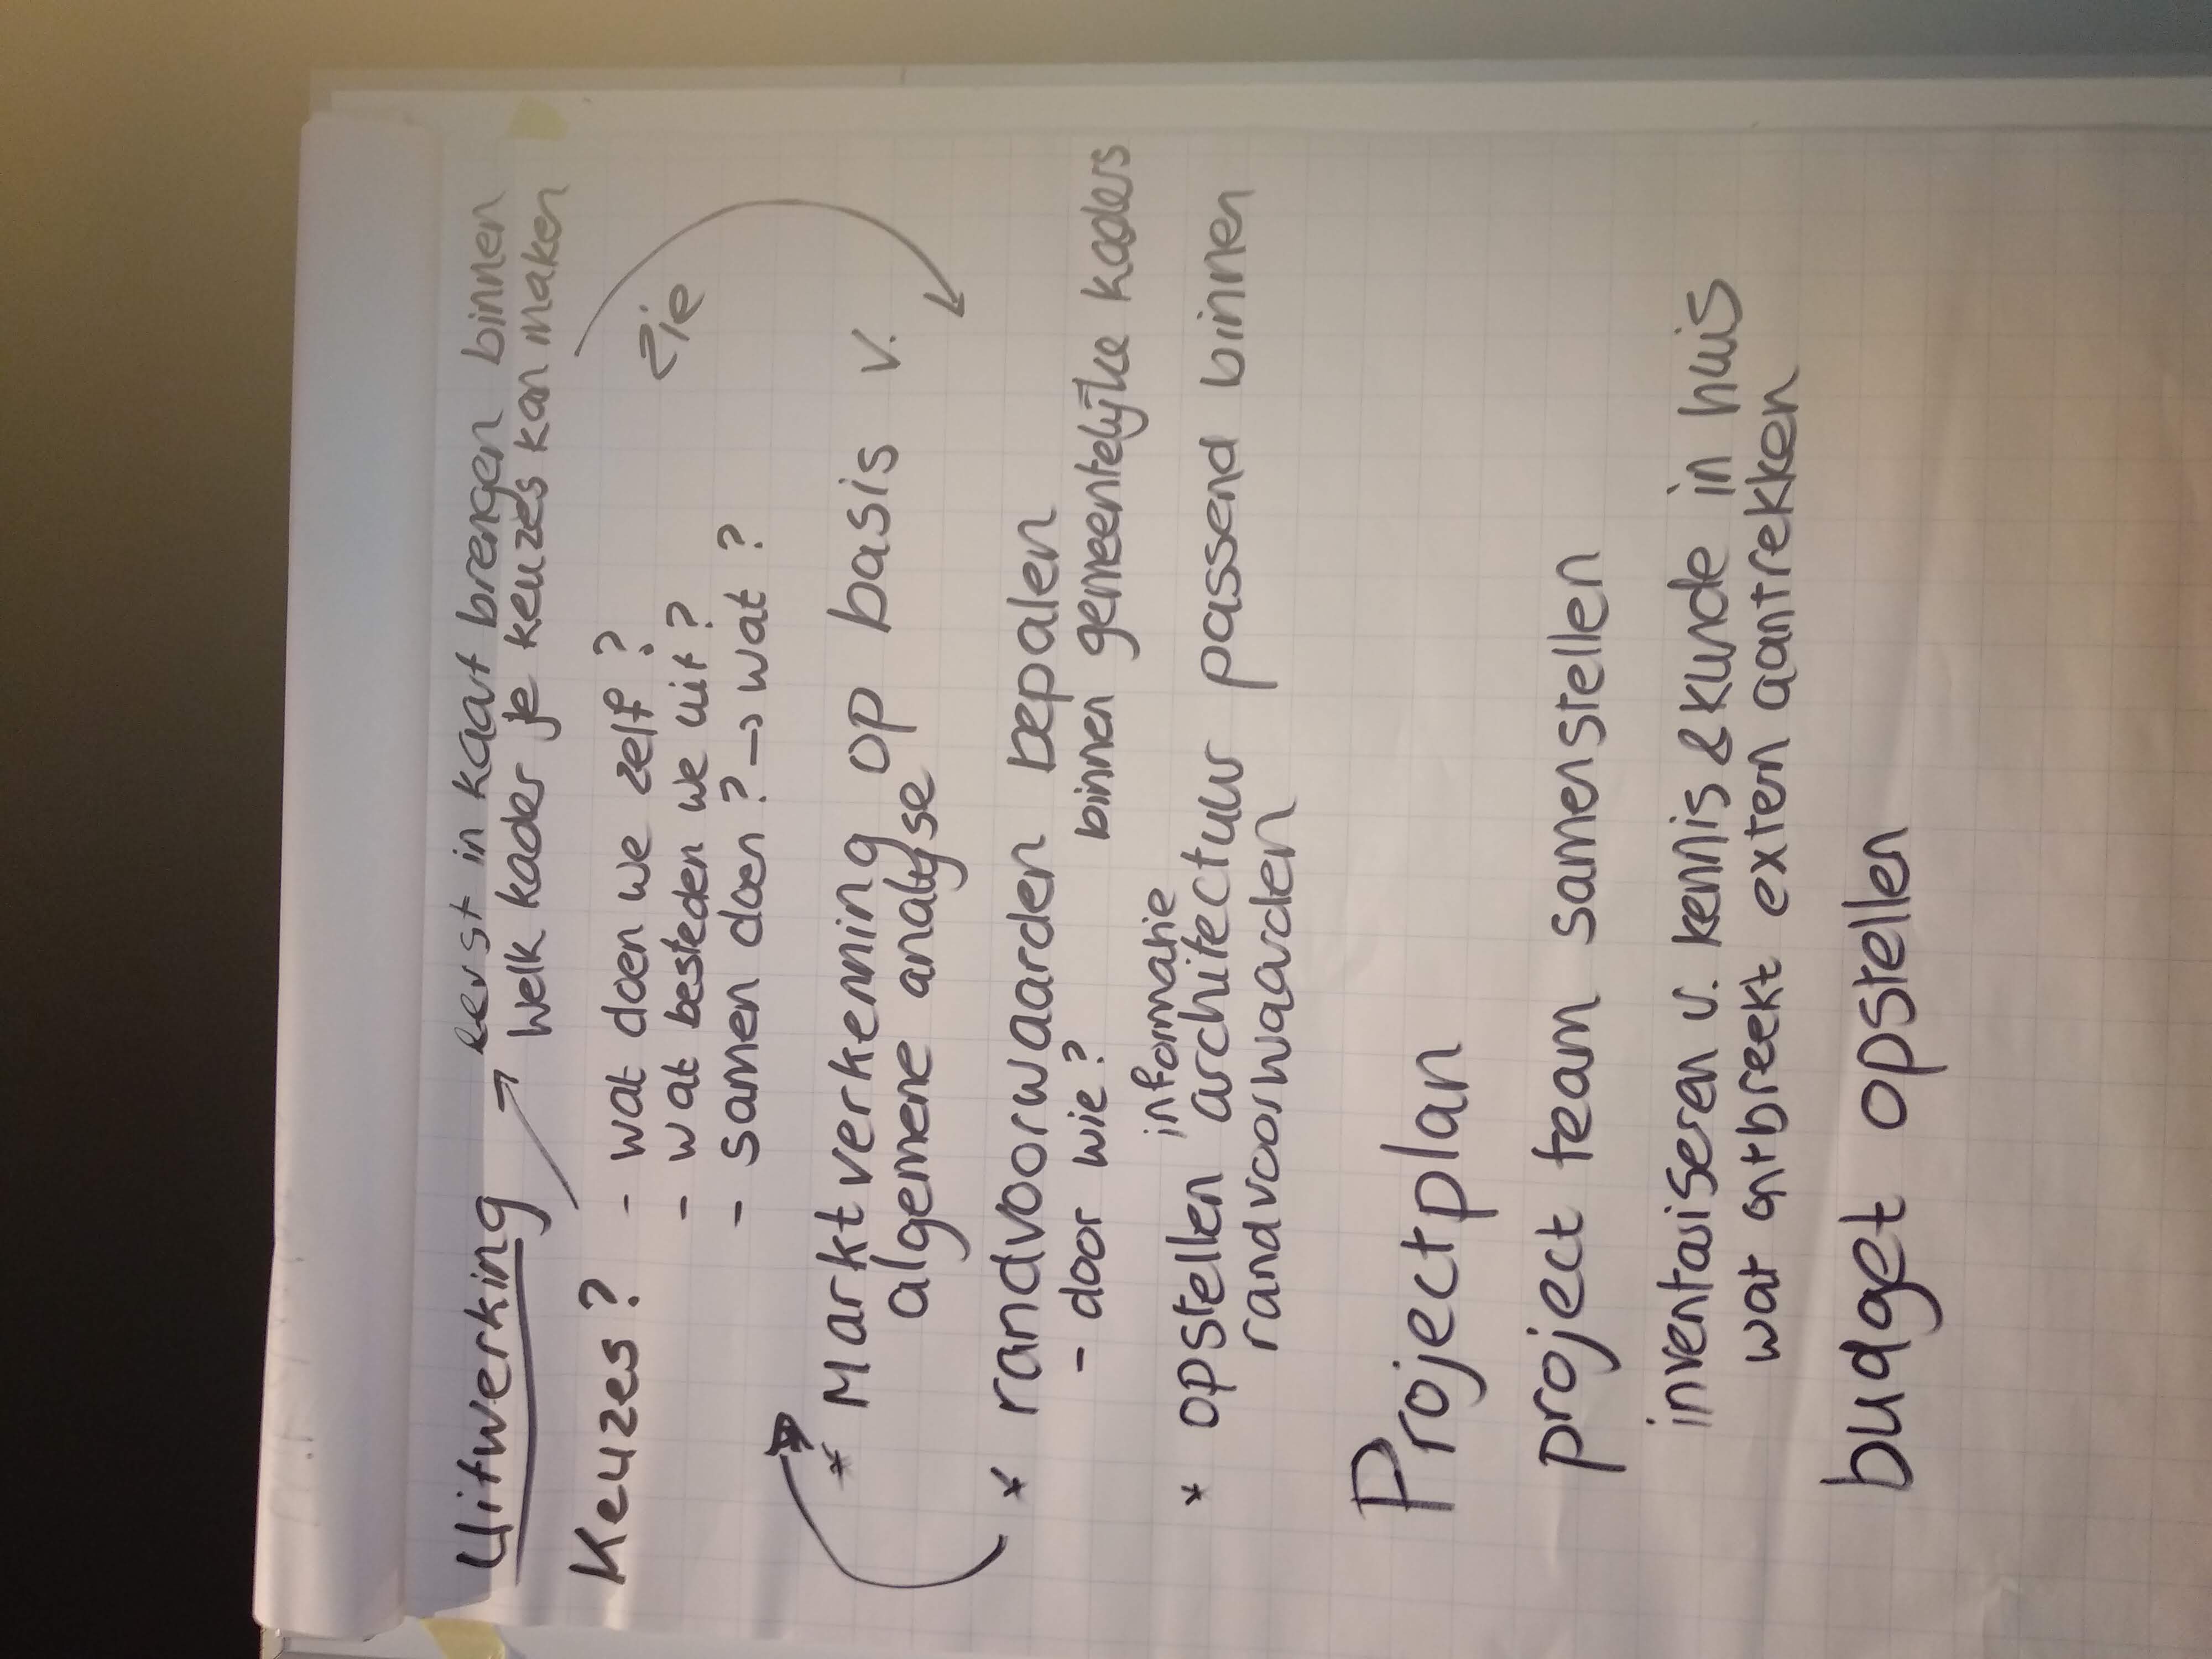 Uitwerking → eerst in kaart brengen binnen
welk kader je keuzes kan maken
Keuzes? - wat doen we zelf?
- wat besteden we uit?
- samen doen? → wat?
zie
* Marktverkenning op basis v.
algemene analyse
* randvoorwaarden bepalen
- door wie? binnen gemeentelijke kaders
informatie
* opstellen architectuur passend binnen
randvoorwaarden
Projectplan
project team samenstellen
inventariseren v. kennis & kunde in huis
wat ontbreekt extern aantrekken
budget opstellen